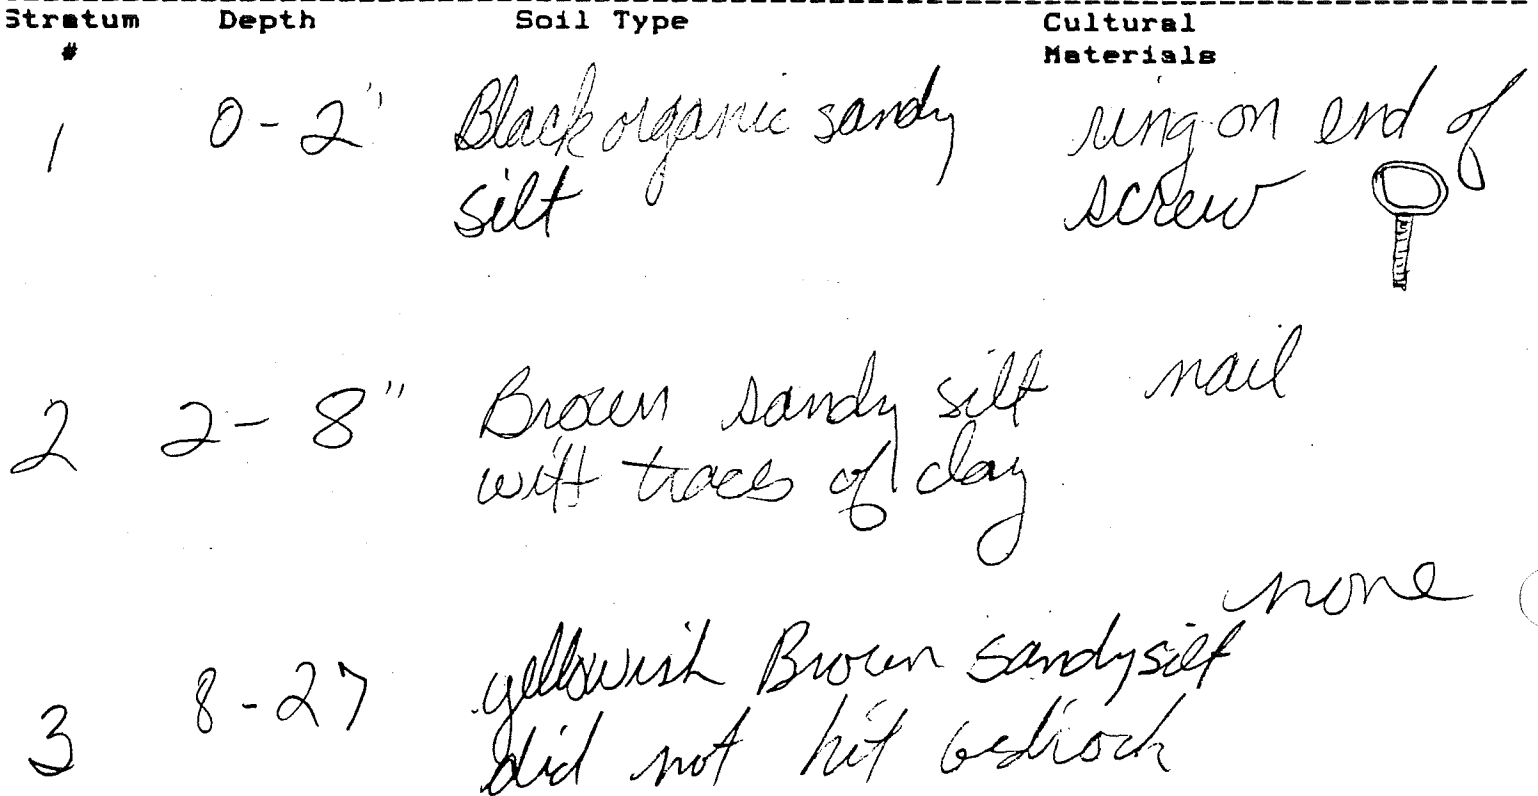 Stratum Depth Soil Type Cultural
# Materials
1 0-2" Black organic sandy ring on end of
silt screw
2 2-8" Brown sandy silt nail
with traces of clay
none
3 8-27 yellowish Brown sandy silt
did not hit bedrock